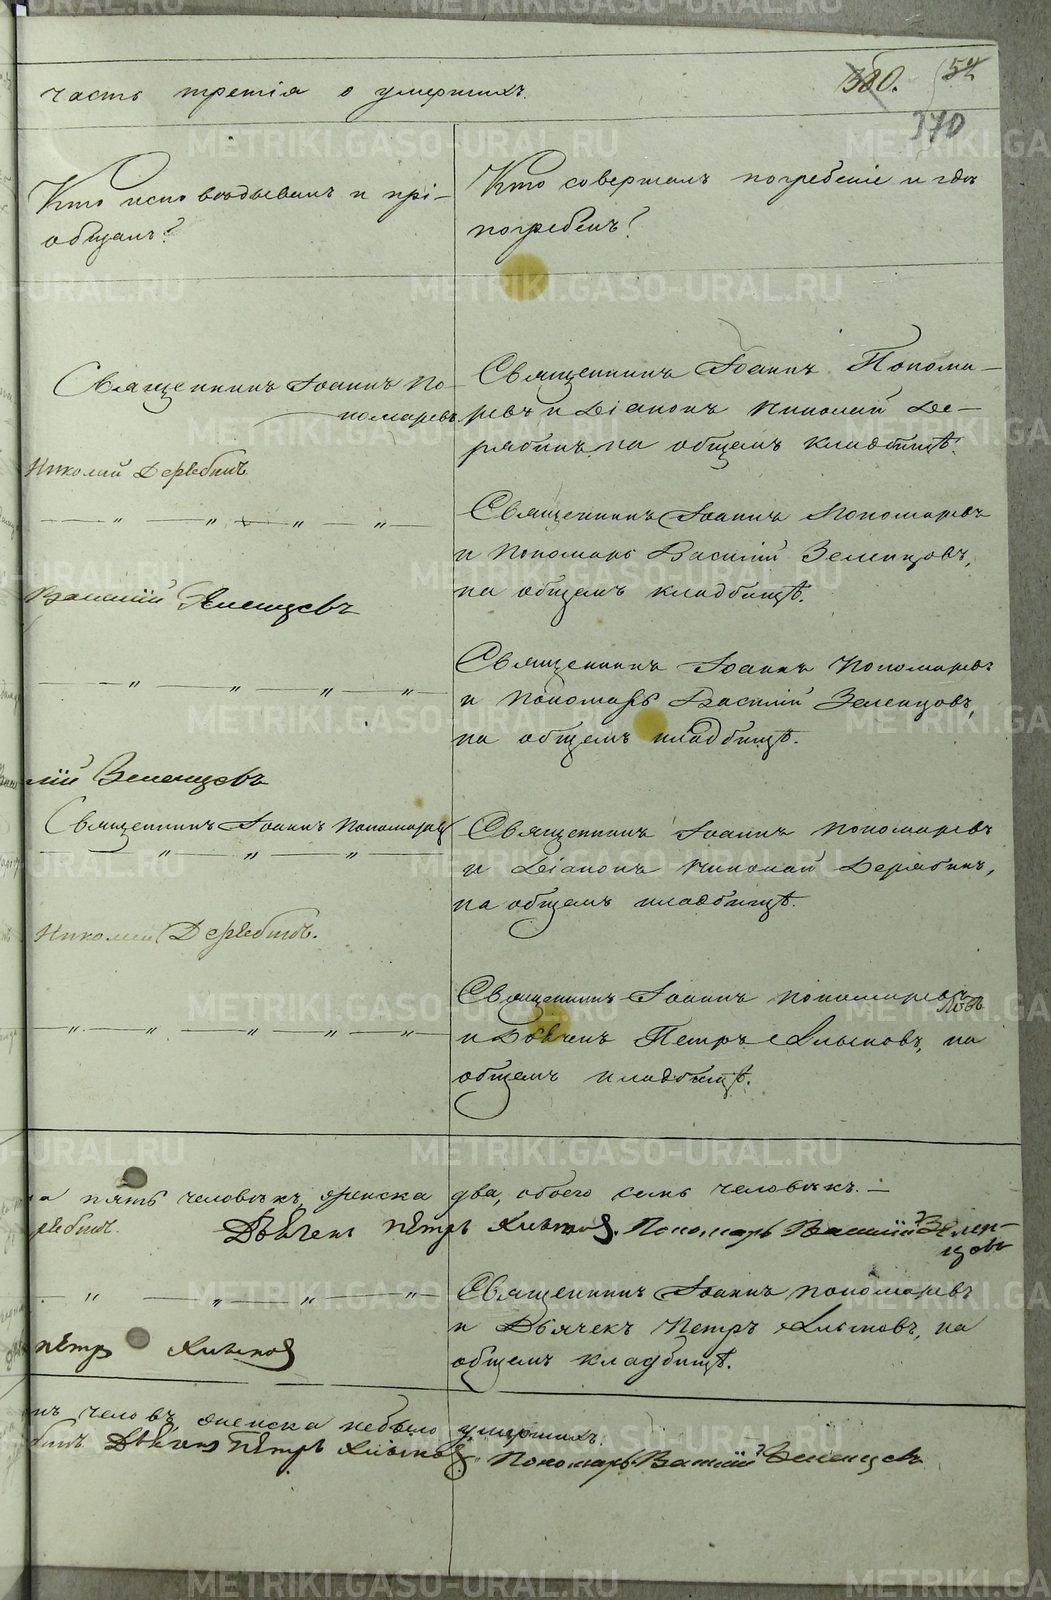 часть третія о умершихъ.
380. 54
370
Кто исповѣдывалъ и прі-
общалъ?
Кто совершалъ погребеніе и гдѣ
погребенъ?
Священникъ Іоаннъ По-
номаревъ.
Священникъ Іоаннъ Понома-
ревъ и Діаконъ Николай Де-
рябинъ, на общемъ кладбищѣ.
Николай Дерябинъ
— " — " — " — " —
Священникъ Іоаннъ Пономаревъ
и Пономарь Василій Зеленцовъ,
на общемъ кладбищѣ.
Василій Зеленцовъ
— " — " — " — " —
Священникъ Іоаннъ Пономаревъ
и Пономарь Василій Зеленцовъ,
на общемъ кладбищѣ.
лій Зеленцовъ
Священникъ Іоаннъ Пономаревъ
— " — " — " —
Священникъ Іоаннъ Пономаревъ
и Діаконъ Николай Дерябинъ,
на общемъ кладбищѣ.
Николай Дерябинъ.
— " — " — " — " — " —
Священникъ Іоаннъ Пономаревъ
и Дьячекъ Петръ Клыковъ, на
общемъ кладбищѣ.
а пять человѣкъ, женска два, обоего семь человѣкъ. —
рябинъ Дьячекъ Петръ Клыковъ. Пономарь Василій Зелен-
цовъ
— " — " — " — " —
Священникъ Іоаннъ Пономаревъ
и Дьячекъ Петръ Клыковъ, на
общемъ кладбищѣ.
Петръ Клыковъ
нъ человѣ, женска небыло умершихъ.
бинъ Дьячекъ Петръ Клыковъ. Пономарь Василій Зеленцовъ
METRIKI.GASO-URAL.RU